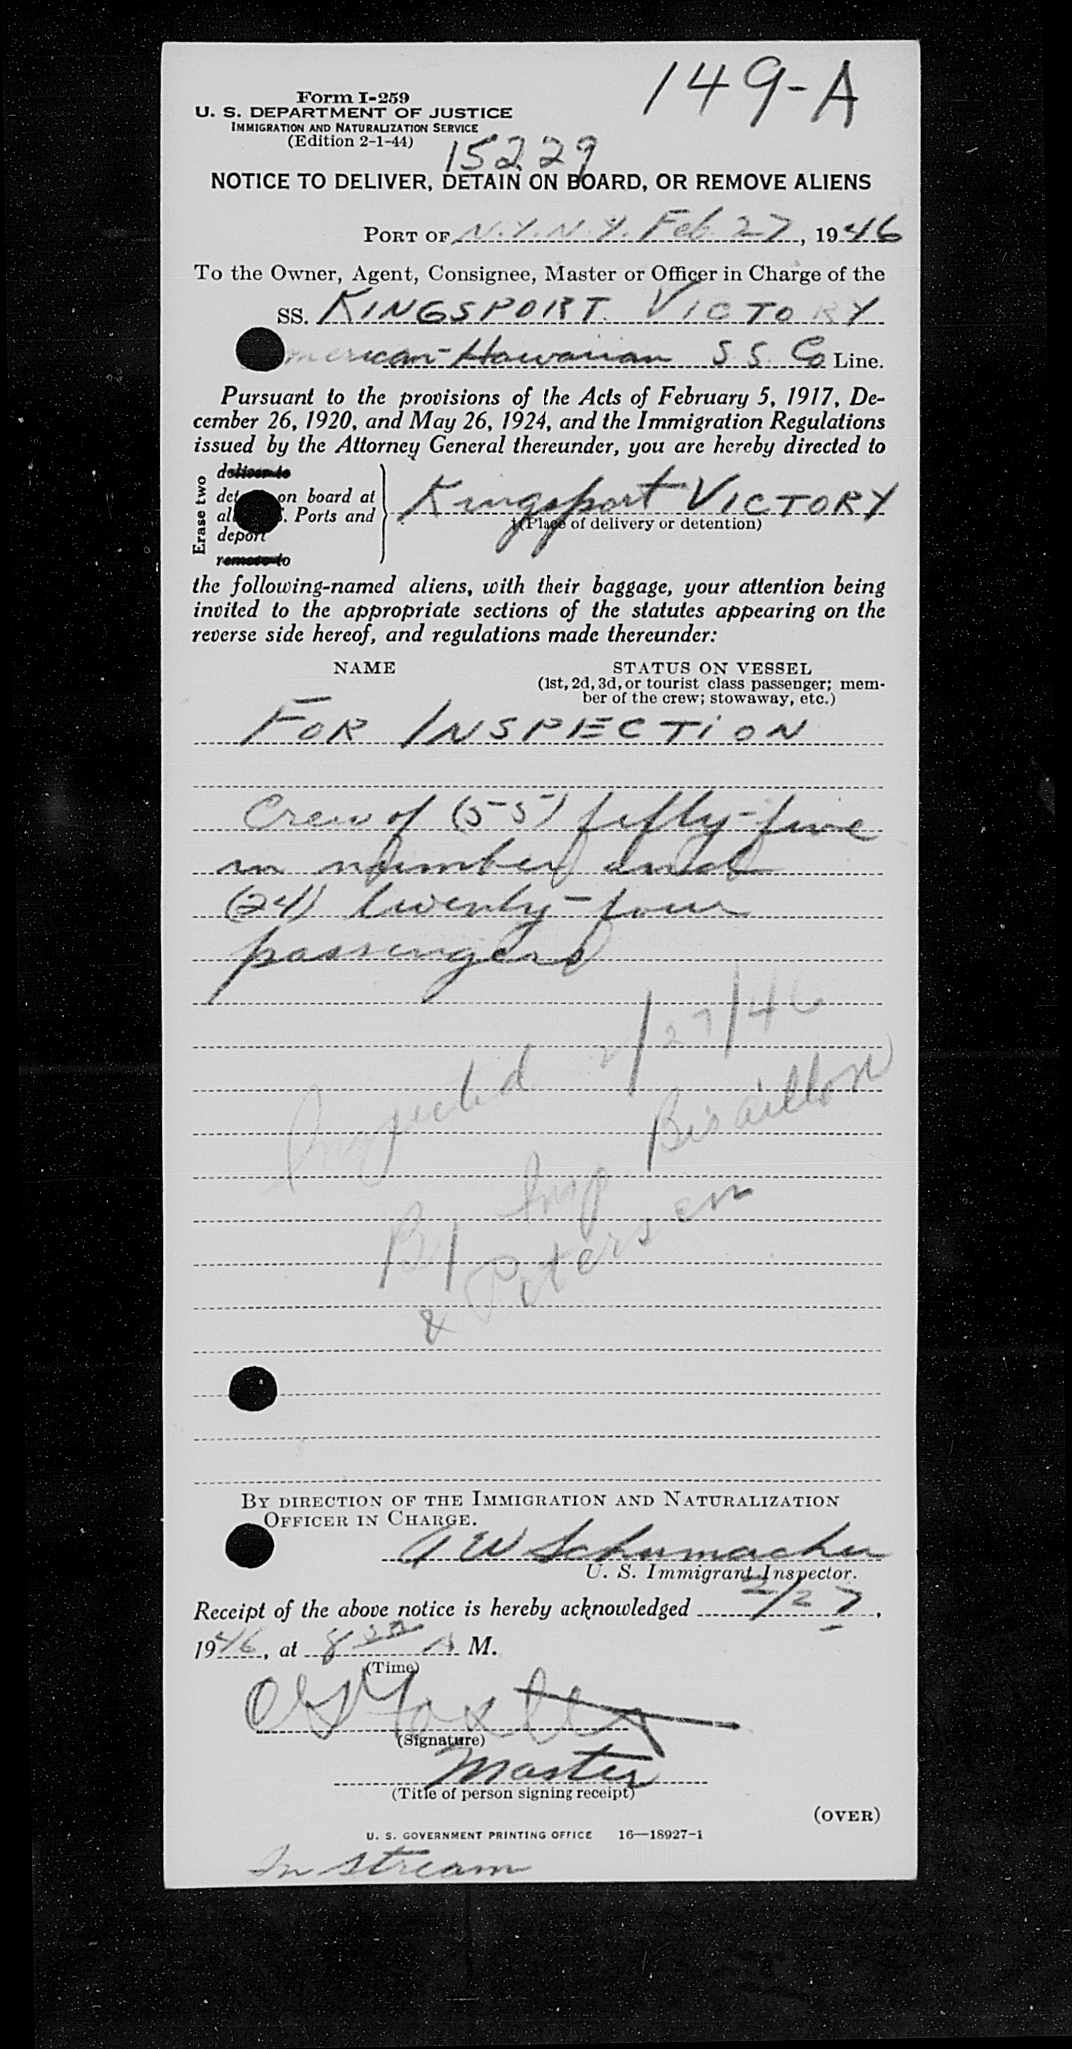 149-A
Form I-259
U. S. DEPARTMENT OF JUSTICE
IMMIGRATION AND NATURALIZATION SERVICE
(Edition 2-1-44)
15229
NOTICE TO DELIVER, DETAIN ON BOARD, OR REMOVE ALIENS
PORT OF N.Y.N.Y. Feb 27, 1946
To the Owner, Agent, Consignee, Master or Officer in Charge of the
SS. KINGSPORT VICTORY
American-Hawaiian S S Co Line.
Pursuant to the provisions of the Acts of February 5, 1917, De-
cember 26, 1920, and May 26, 1924, and the Immigration Regulations
issued by the Attorney General thereunder, you are hereby directed to
Erase two
deliver to
det on board at
al S. Ports and
deport
remove to
Kingsport VICTORY
(Place of delivery or detention)
the following-named aliens, with their baggage, your attention being
invited to the appropriate sections of the statutes appearing on the
reverse side hereof, and regulations made thereunder:
NAME STATUS ON VESSEL
(1st, 2d, 3d, or tourist class passenger; mem-
ber of the crew; stowaway, etc.)
FOR INSPECTION
Crew of (55) fifty-five
in number and
(24) twenty-four
passengers
Inspected 2/27/46
By Insp Bisaillon
& Petersen
BY DIRECTION OF THE IMMIGRATION AND NATURALIZATION
OFFICER IN CHARGE.
A W Schumacher
U. S. Immigrant Inspector.
Receipt of the above notice is hereby acknowledged 2/27,
1946, at 8 30 A M.
(Time)
(Signature)
Master
(Title of person signing receipt)
(OVER)
U. S. GOVERNMENT PRINTING OFFICE 16—18927-1
In stream